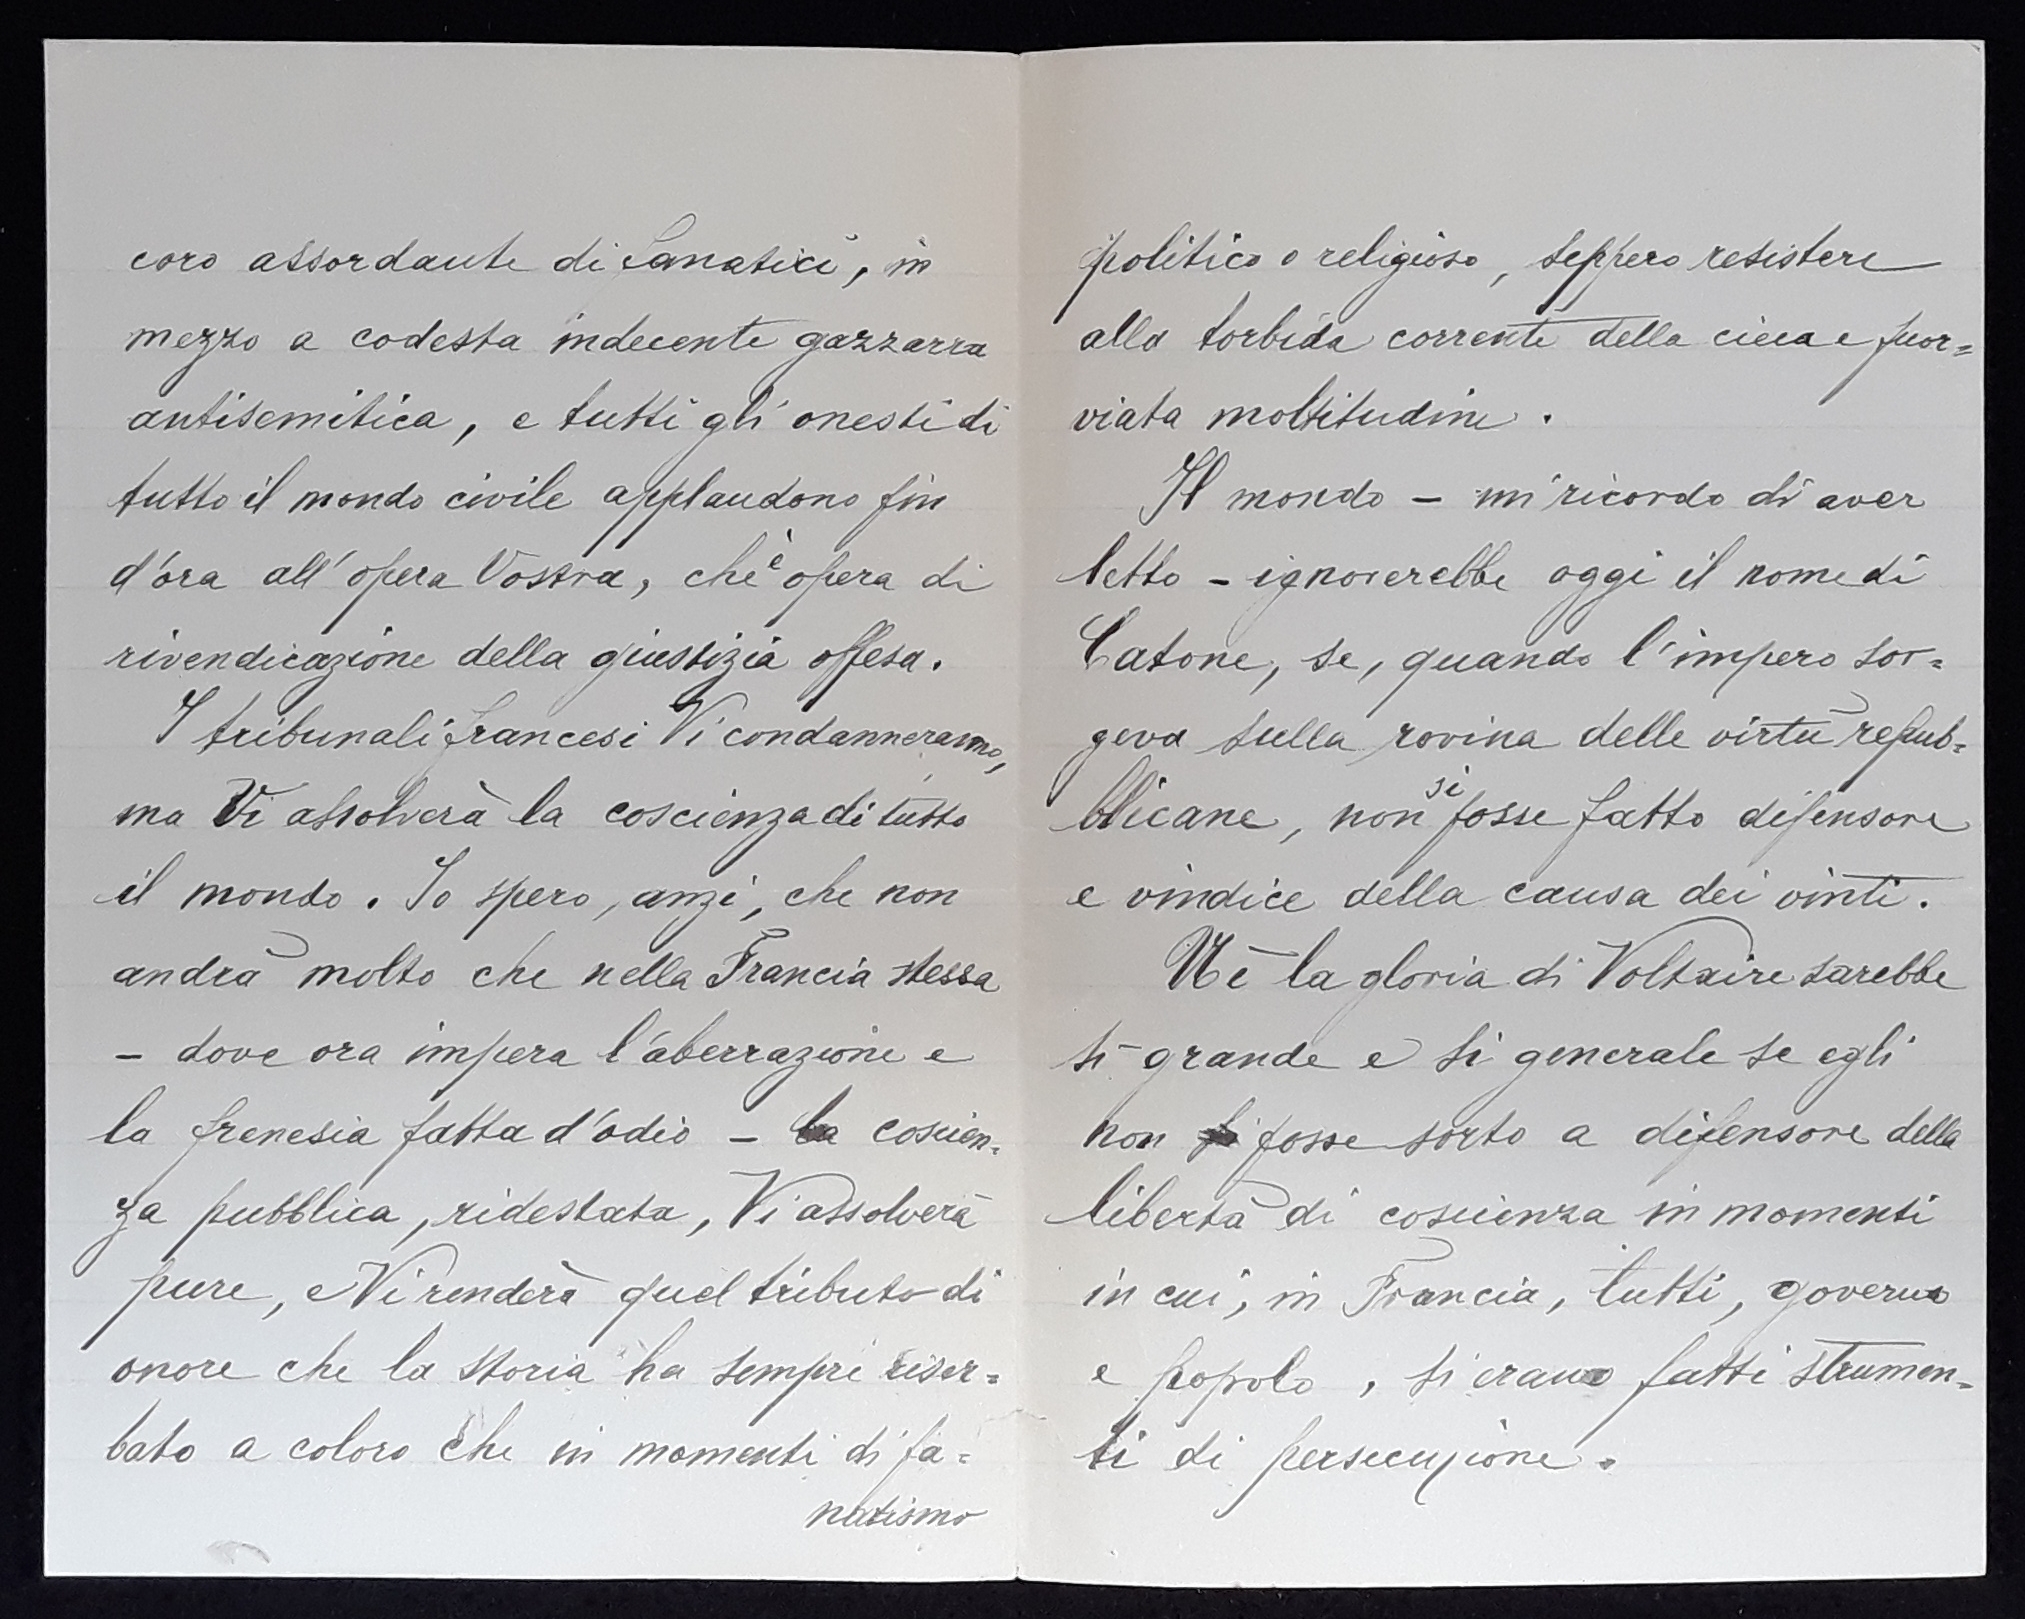 coro assordante di fanatici, in
mezzo a codesta indecente gazzarra
antisemitica, e tutti gli onesti di
tutto il mondo civile applaudono fin
d'ora all'opera Vostra, che è opera di
rivendicazione della giustizia offesa.
I tribunali francesi Vi condanneranno,
ma Vi assolverà la coscienza di tutto
il mondo. Io spero, anzi, che non
andrà molto che nella Francia stessa
– dove ora impera l'aberrazione e
la frenesia fatta d'odio – la coscien=
za pubblica, ridestata, Vi assolverà
pure, e Vi renderà quel tributo di
onore che la storia ha sempre riser=
bato a coloro che in momenti di fa=
natismo
politico o religioso, seppero resistere
alla torbida corrente della cieca e fuor=
viata moltitudine.
Il mondo – mi ricordo di aver
letto – ignorerebbe oggi il nome di
Catone, se, quando l'impero sor=
geva sulla rovina delle virtù repub=
blicane, non si fosse fatto difensore
e vindice della causa dei vinti.
Nè la gloria di Voltaire sarebbe
sì grande e sì generale se egli
non fosse sorto a difensore della
libertà di coscienza in momenti
in cui, in Francia, tutti, governo
e popolo, si erano fatti strumen=
ti di persecuzione.